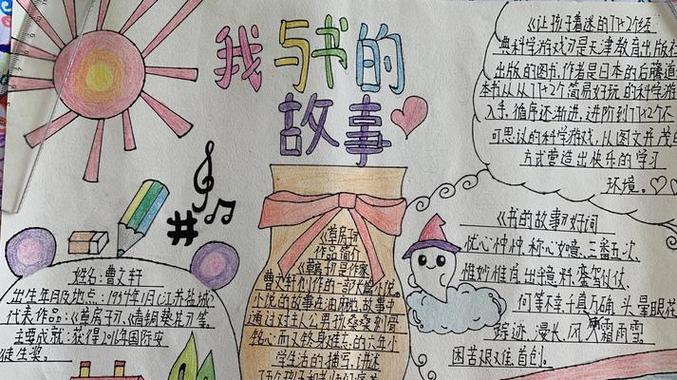 我与书的
故事
《让孩子着迷的77×2个经
典科学游戏》是天津教育出版社
出版的图书,作者是日本的后藤道夫
本书从77×2个简易好玩的科学游
入手,循序渐进,进阶到77×2个不
可思议的科学游戏,从图文并茂
方式营造出快乐的学习
环境。
姓名:曹文轩
出生年月及地点:1954年1月(江苏盐城)
代表作品:《草房子》、《青铜葵花》等
主要成就:获得2016年国际安
徒生奖。
《草房子》
作品简介
《草房子》是作家
曹文轩创作的一部长篇小说。
小说的故事在油麻地,故事中
通过对主人公男孩桑桑刻骨
铭心而又终身难忘的六年小
学生活的描写,讲述
了五个孩子和
《书的故事》好词
忧心忡忡、称心如意、三番五次、
惟妙惟肖、出乎意料、
何等不幸、千真万确、头晕眼花
踪迹、漫长、风霜雨雪、
困苦艰难、首创。